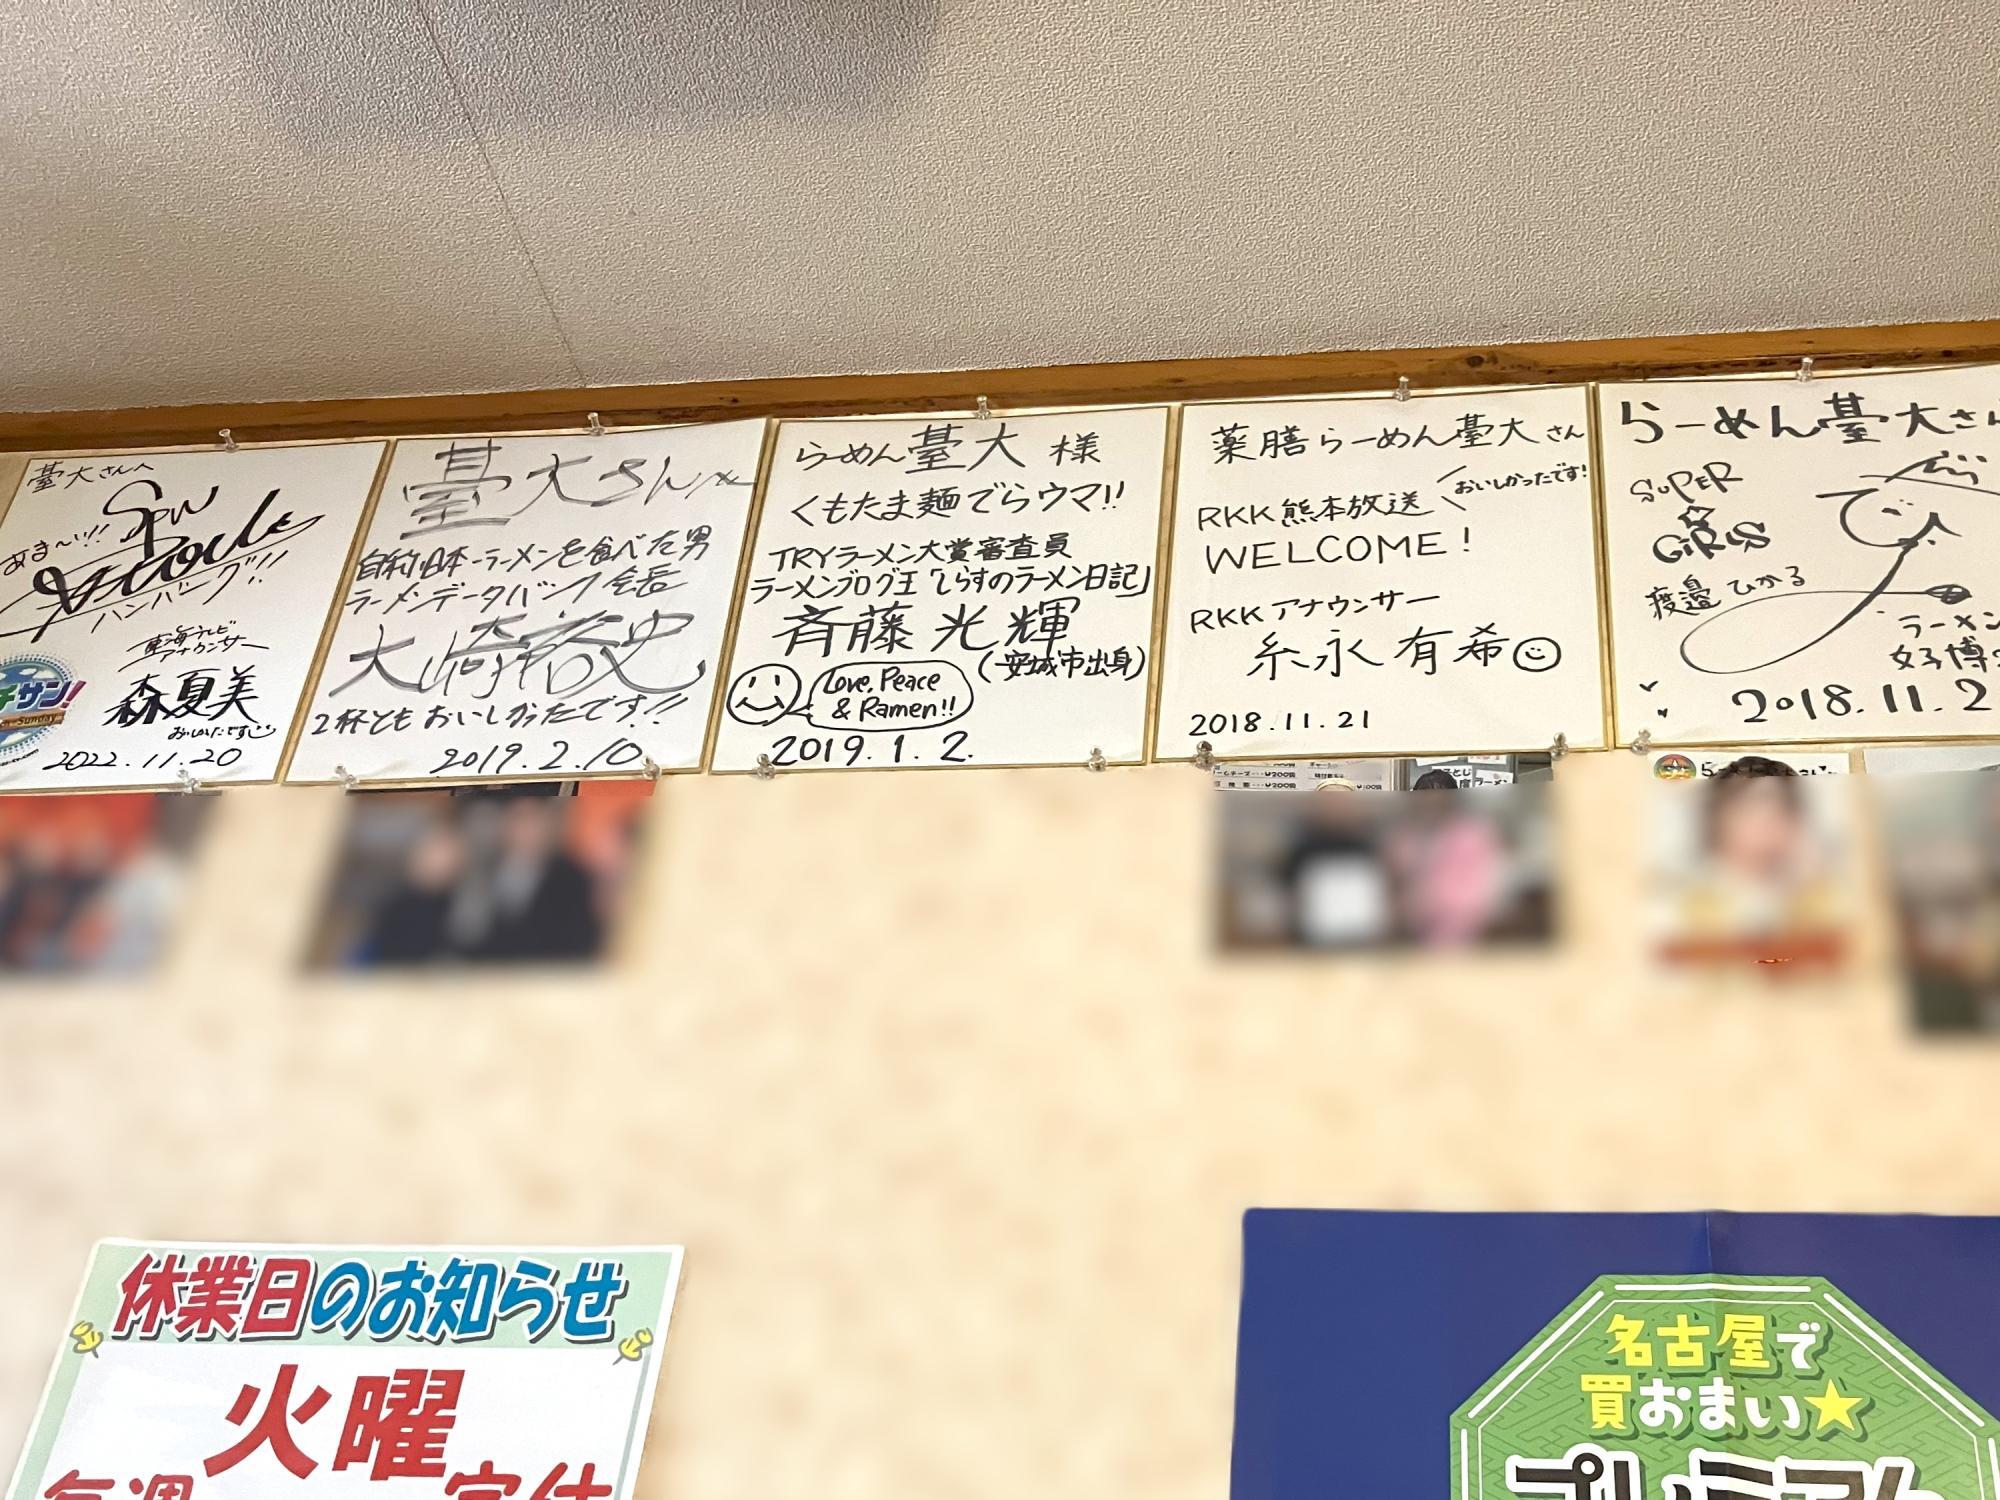 臺大さんへ
Spw
あま〜い!!
ハンバーグ!!
東海テレビ
アナウンサー
森夏美
おいしかったです
チサン!
Sunday
2022.11.20
臺大さん江
自称日本一ラーメンを食べた男
ラーメンデータバンク会長
大崎裕史
2杯ともおいしかったです!!
2019.2.10
らーめん臺大様
くもたま麺でらウマ!!
TRYラーメン大賞審査員
ラーメンブログ王「しらすのラーメン日記」
斉藤光輝
(安城市出身)
Love, Peace
& Ramen!!
2019.1.2.
薬膳らーめん臺大さん
おいしかったです!
RKK熊本放送
WELCOME!
RKKアナウンサー
糸永有希
2018.11.21
らーめん臺大さん
SUPER
☆
GiRLS
渡邉ひかる
ラーメン
女子博
2018.11.2
休業日のお知らせ
火曜
毎週
定休
名古屋で
買おまい★
プレミアム